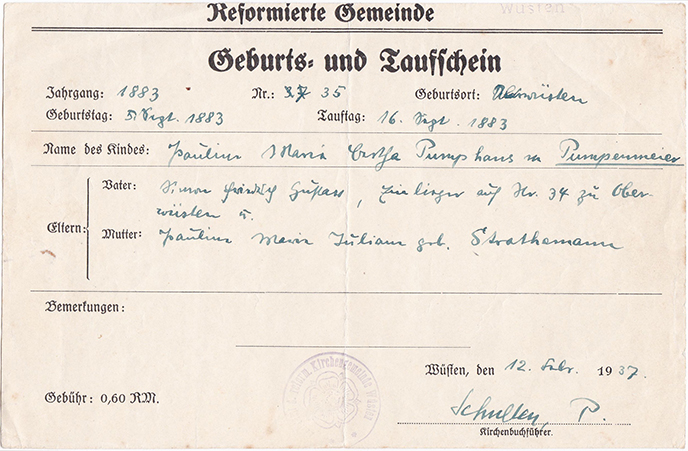 Wüsten
Reformierte Gemeinde
Geburts- und Taufschein
Jahrgang: 1883 Nr.: 37 35 Geburtsort: Oberwüsten
Geburtstag: 5. Sept. 1883 Tauftag: 16. Sept. 1883
Name des Kindes: Pauline Maria Bertha Pumphaus Pumpenmeier
Vater: Simon Friedrich Gustav, Einlieger auf Nr. 34 zu Ober-
wüsten u.
Eltern:
Mutter: Pauline Maria Juliane geb. Strathemann
Bemerkungen:
Wüsten, den 12. Febr. 1937.
Gebühr: 0,60 RM.
Kirchengemeinde Wüsten
Schulten, P.
Kirchenbuchführer.